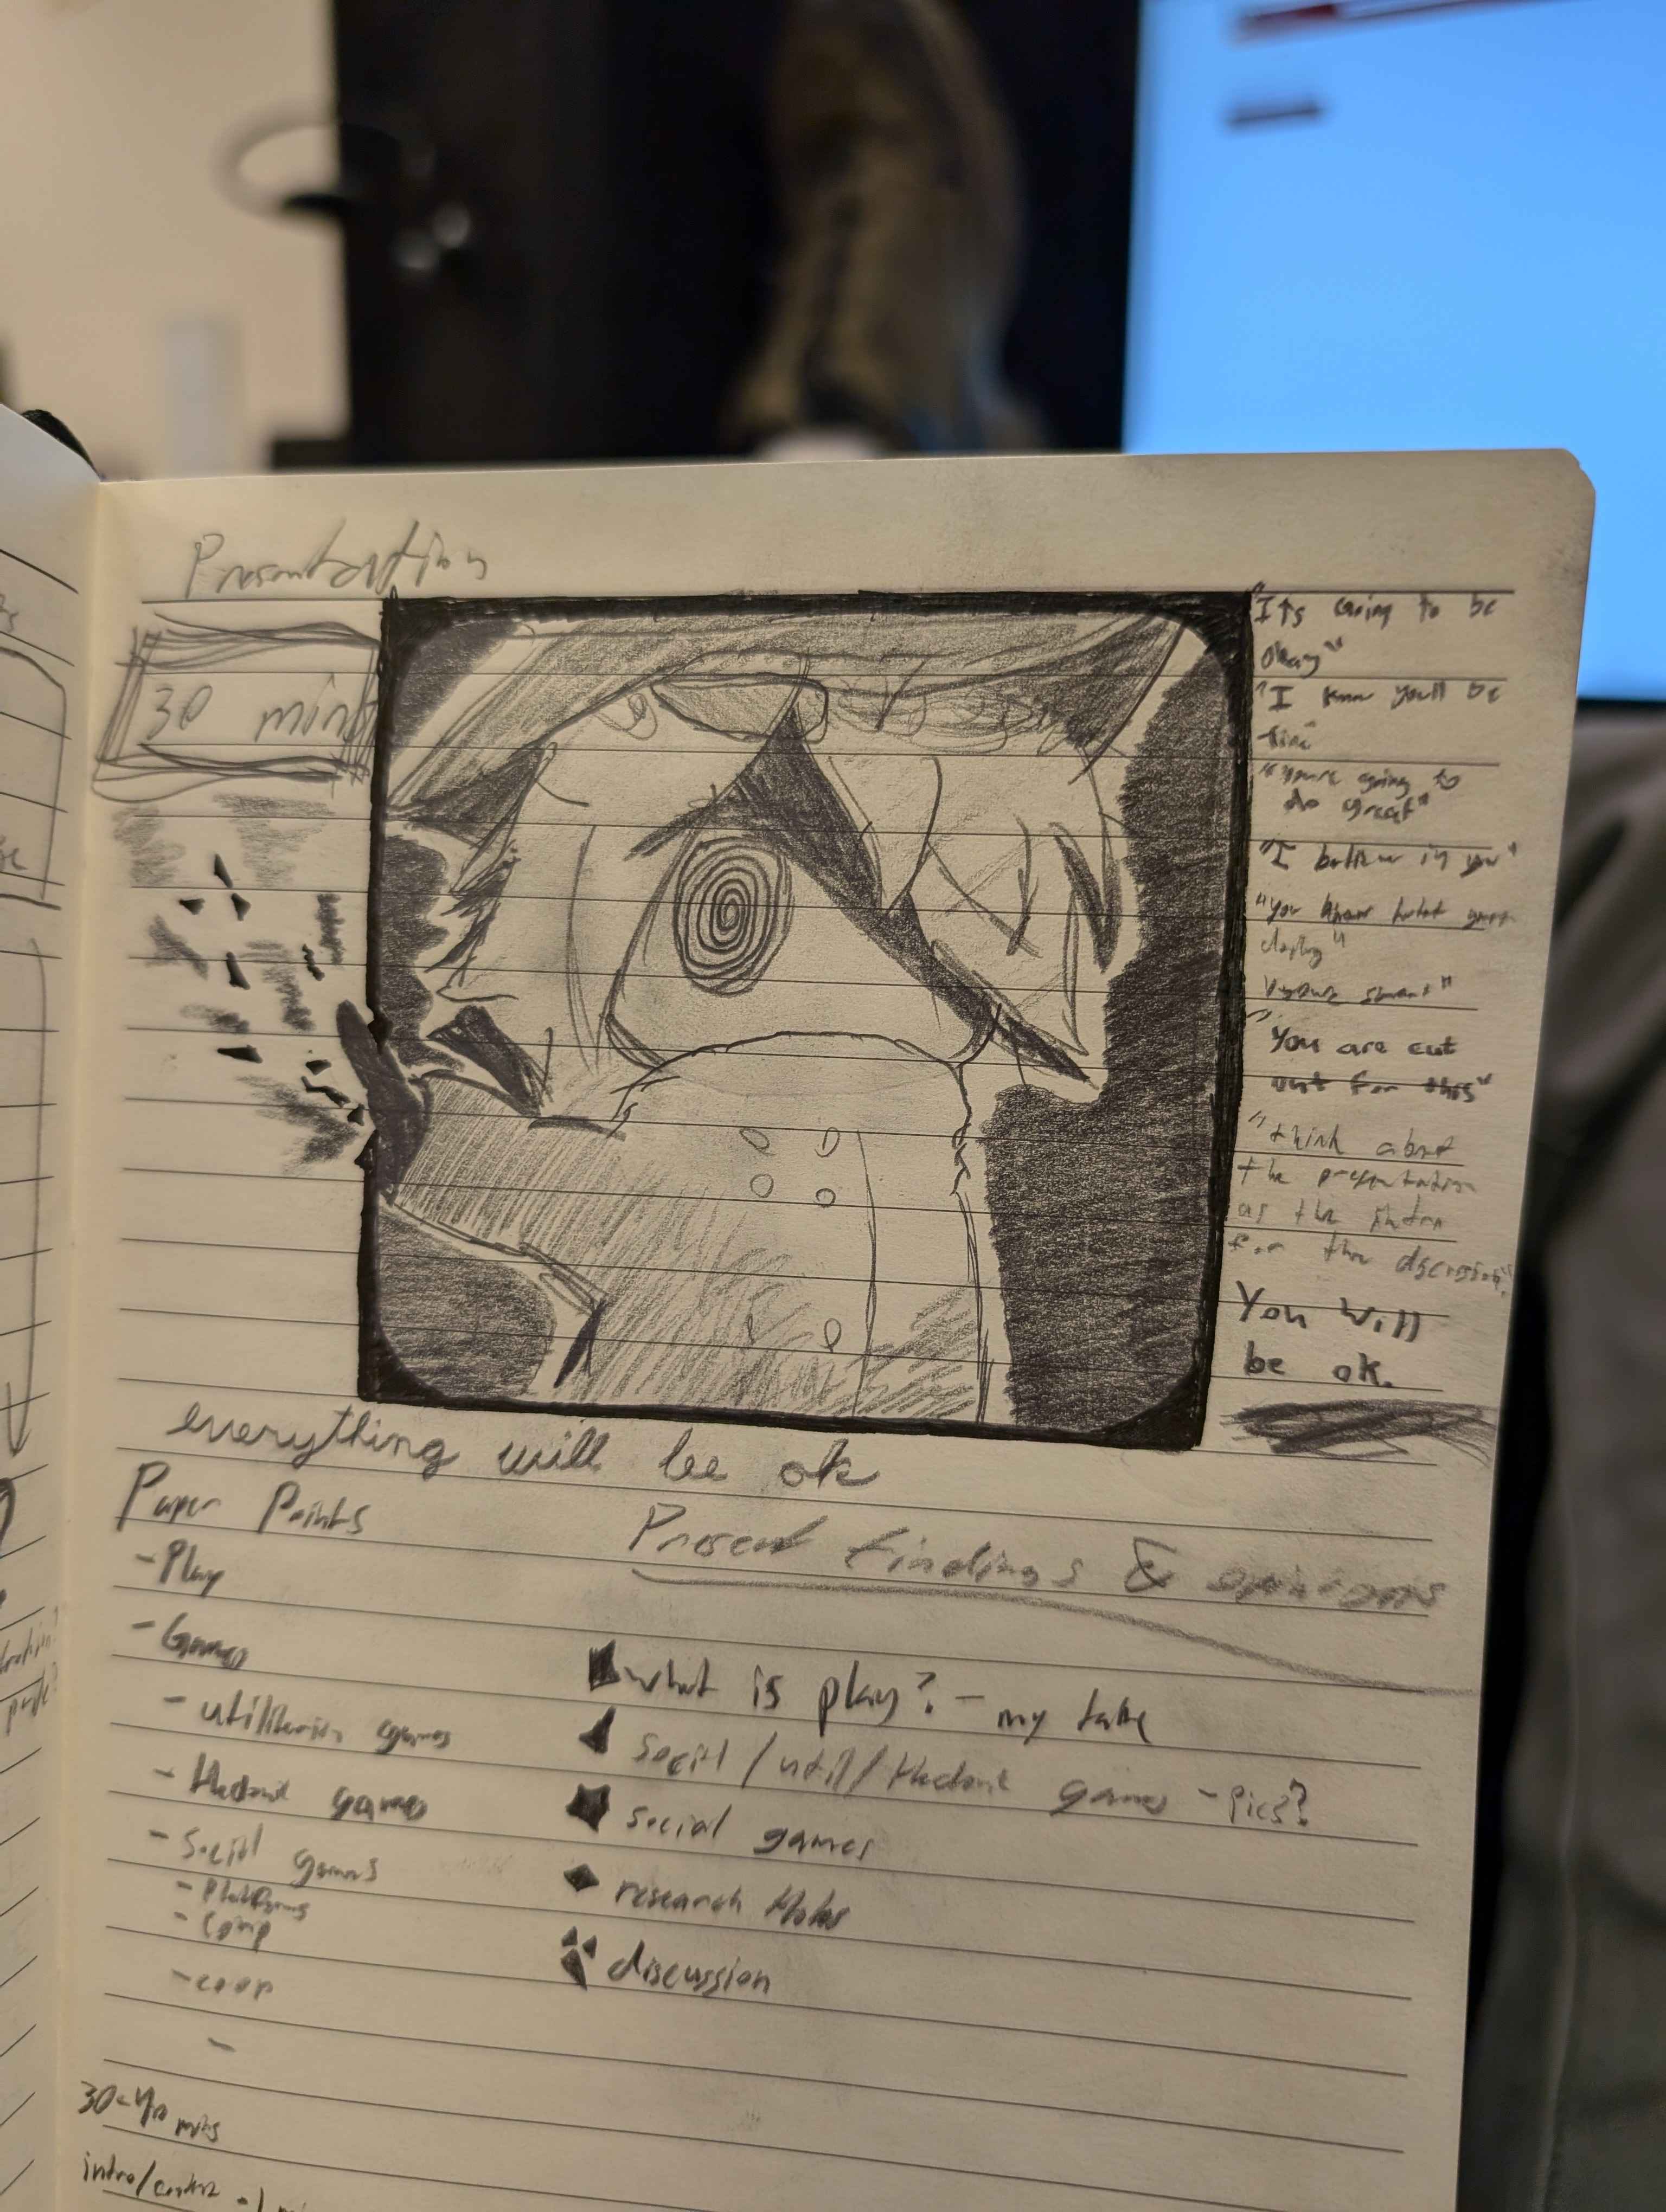 Presentation
30 mins
"Its Going to be
Okay"
"I know you'll be
fine
"youre going to
do great"
"I believe in you"
"you know what your
doing"
"youre smart"
"You are cut
out for this"
"think about
the presentation
as the intro
for the discussion"
You will
be ok.
everything will be ok
Paper Points
Present findings & opinions
- Play
- Games
- utilitarian games
- Hedonic games
- Social games
- Platforms
- Comp
- coop
-
what is play? - my take
social / util / Hedonic games - pics?
social games
research
discussion
30-40 mins
intro/